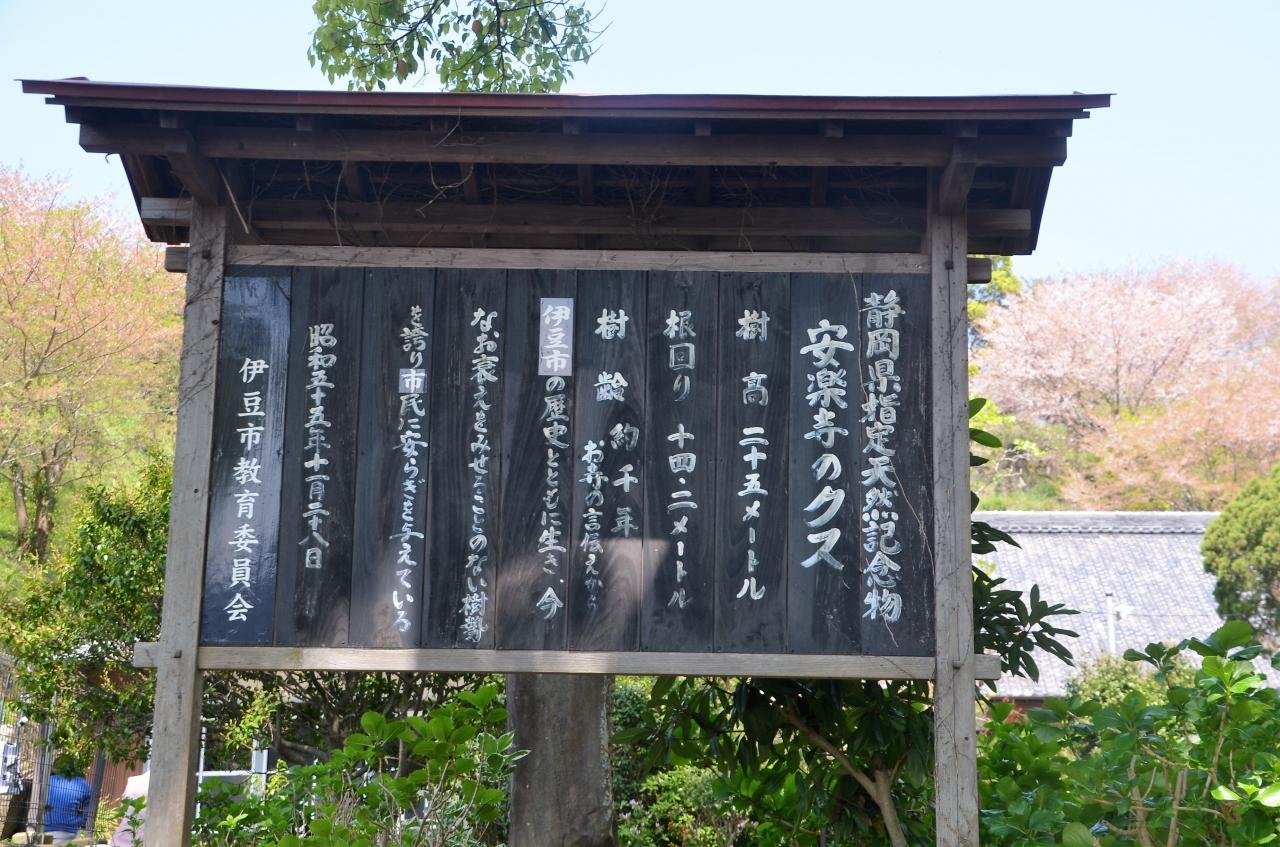 静岡県指定天然記念物
安楽寺のクス
樹高 二十五メートル
根回り 十四・二メートル
樹齢 約千年
お寺の言伝えから
伊豆市の歴史とともに生き、今
なお衰えをみせることのない樹勢
を誇り市民に安らぎを与えている
昭和五十五年十一月二十八日
伊豆市教育委員会